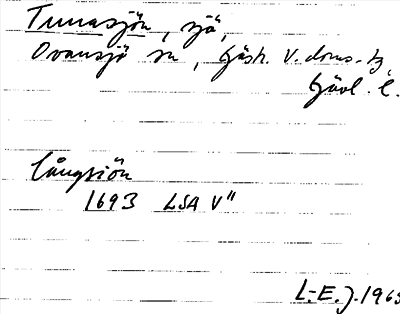 Tunasjön, sjö,
Ovansjö sn, Gästr. V. doms. tg
Gävl. l.
långsiön
1693 LSA V"
L-E. J. 1963